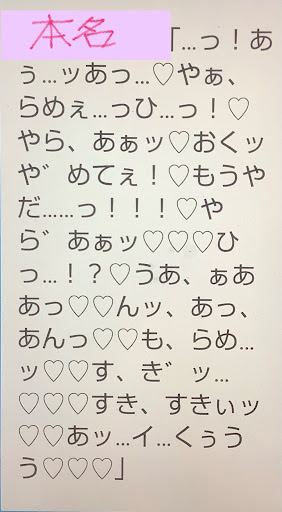 本名「…っ！あ
ぅ…ッあっ…♡やぁ、
らめぇ…っひ…っ！♡
やら、あぁッ♡おくッ
や゛めてぇ！♡もうや
だ……っ！！！♡や
ら゛あぁッ♡♡♡ひ
っ…！？♡うあ、ぁあ
あっ♡♡んッ、あっ、
あんっ♡♡も、らめ…
ッ♡♡す、き゛ッ…
♡♡♡すき、すきぃッ
♡♡あッ…イ…くぅう
う♡♡♡」